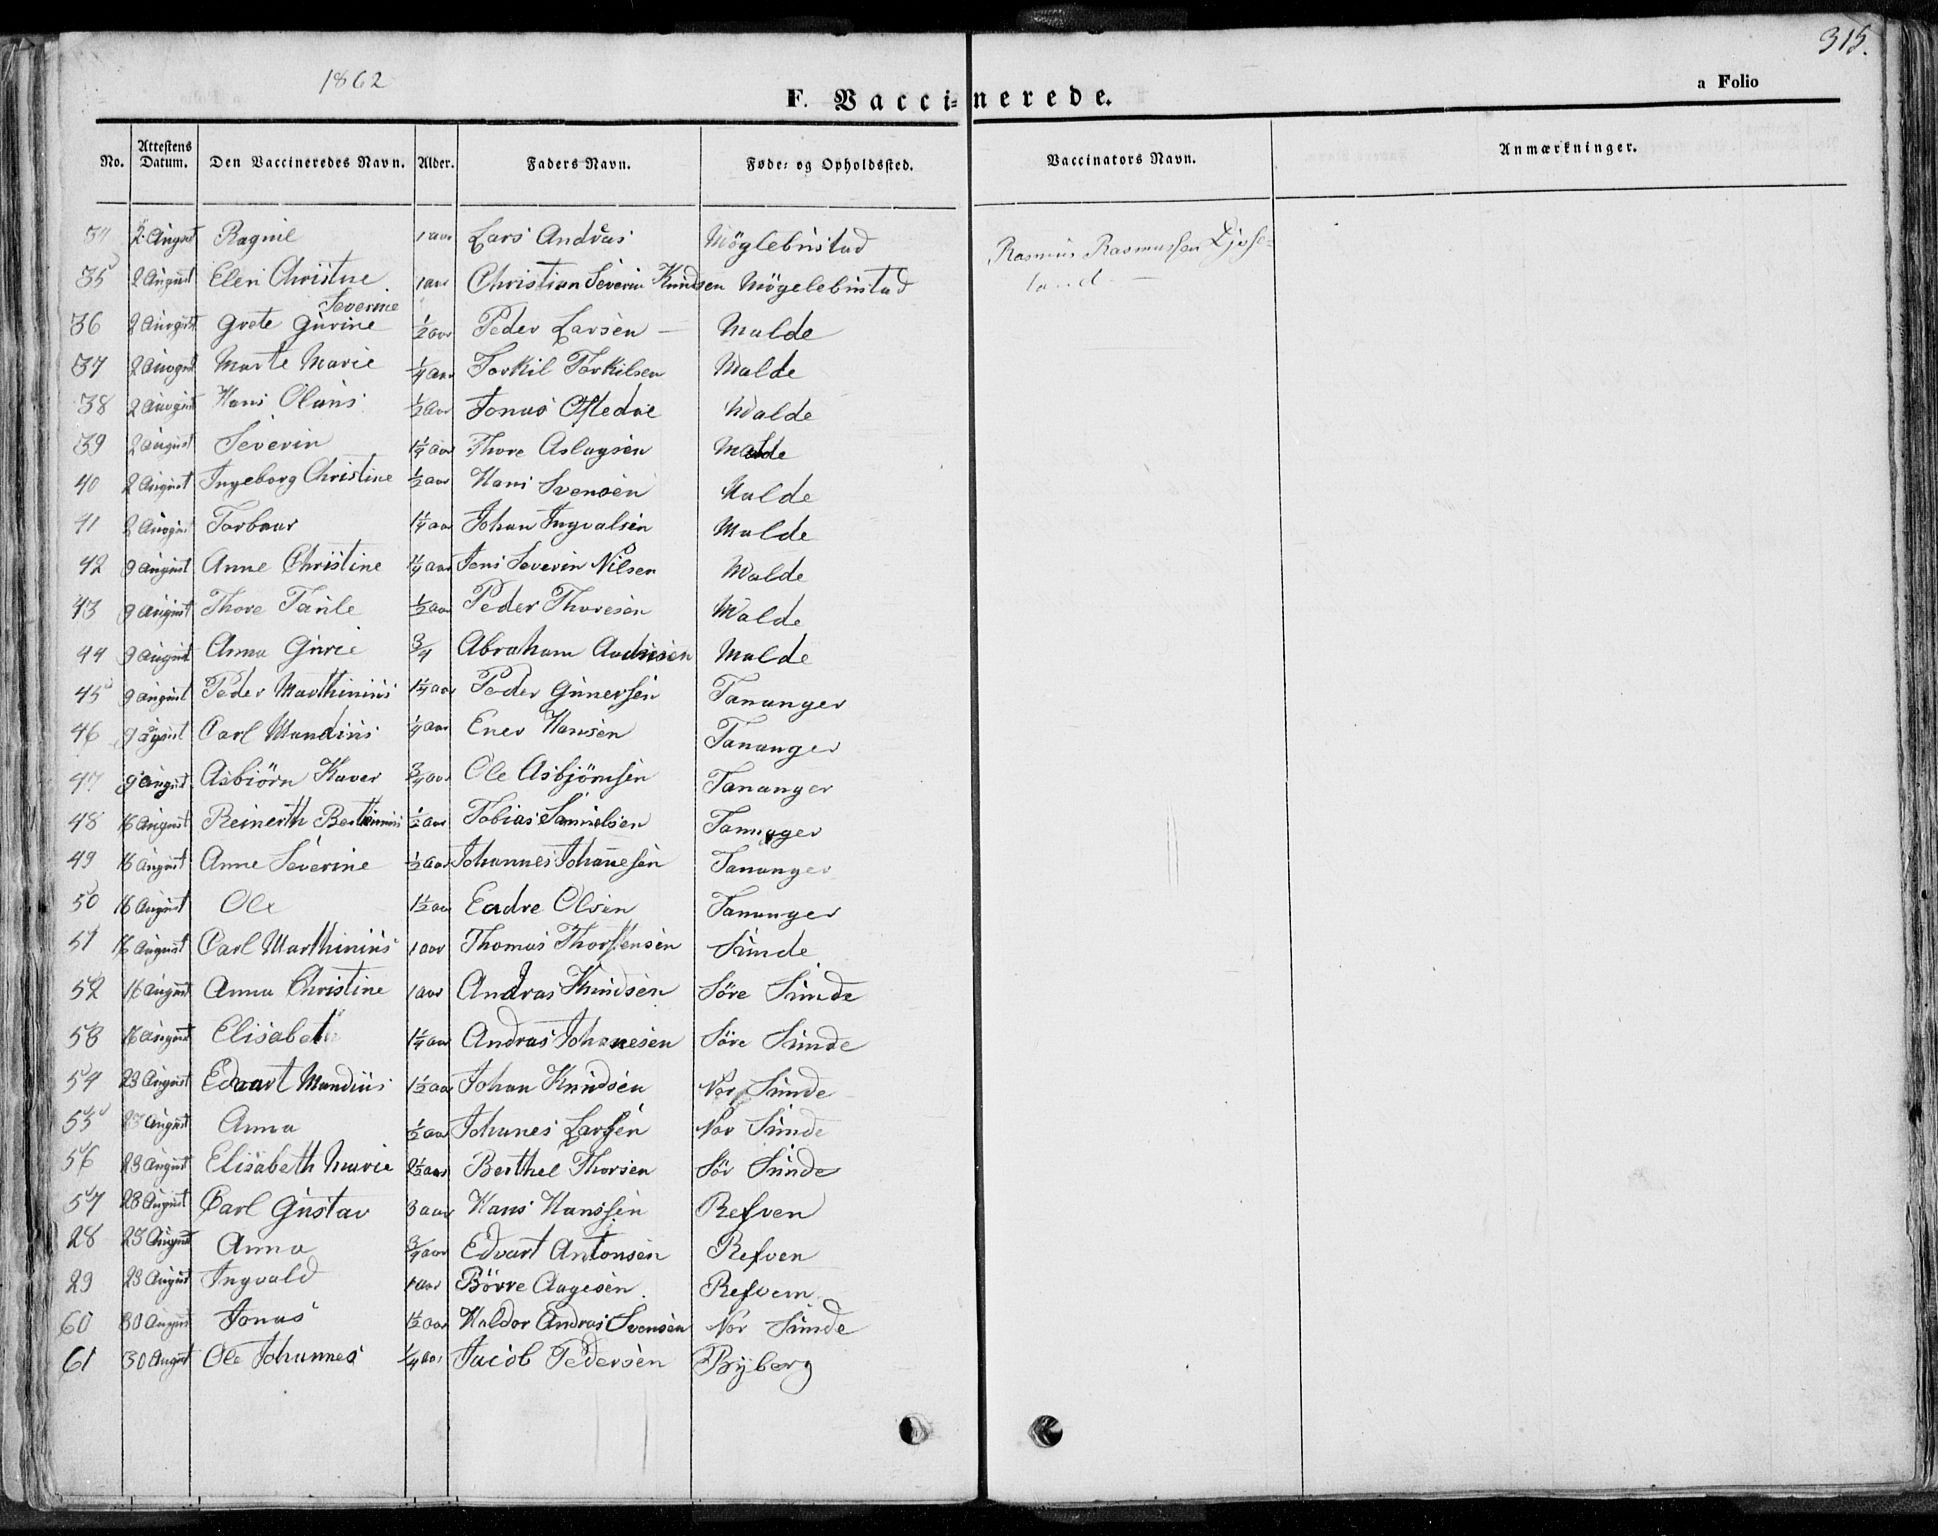 315.
1862
F. Vaccinerede.
a Folio
No. Attestens Datum. Den Vaccineredes Navn. Alder. Faders Navn. Føde- og Opholdssted. Vaccinators Navn. Anmærkninger.
34 2 August Ragnil 1 aar Lars Andras Möglebustad Rasmus Rasmussen
35 2 August Elen Christine 1 aar Christian Severin Knudsen Mögelebustad land
Severine
36 2 August Grete Gurine 1/2 aar Peder Larsen Malde
37 2 August Marte Marie 1/4 aar Torkil Torkilsen Malde
38 2 August Hans Olaus 1/2 aar Jonas Oftedal Malde
39 2 August Severin 1 1/4 aar Thore Aslagsen Malde
40 2 August Ingeborg Christine 1/2 aar Hans Svensen Malde
41 2 August Torbaar 1 1/4 aar Johan Ingvalsen Malde
42 9 August Anne Christine 1/4 aar Jens Severin Nilsen Malde
43 9 August Thore Tarile 1/2 aar Peder Thoresen Malde
44 9 August Anna Gurie 3/4 Abraham Andrisen Malde
45 9 August Peder Marthinius 1 1/4 aar Peder Gunersen Tananger
46 9 August Carl Mandius 1/4 aar Ener Hansen Tananger
47 9 August Asbiörn Kaver 3/4 aar Ole Asbjörnsen Tananger
48 16 August Reinerth Berthinius 1/2 aar Tobias Samuelsen Tananger
49 16 August Anne Severine 1/2 aar Johannes Johanesen Tananger
50 16 August Ole 1 1/2 aar Eadre Olsen Tananger
51 16 August Carl Marthinius 1 aar Thomas Thorstensen Sunde
52 16 August Anna Christine 1 aar Andras Knudsen Söre Sunde
53 16 August Elisabeth 1 1/4 aar Andras Johanesen Söre Sunde
54 23 August Edvart Mandius 1 1/2 aar Johan Knudsen Nor Sunde
55 23 August Anna 1/2 aar Johanes Larsen Nor Sunde
56 23 August Elisabeth Marie 2 1/2 aar Berthel Thorsen Sör Sunde
57 23 August Carl Gustav 3 aar Hans Hanssen Refven
28 23 August Anna 3/4 aar Edvart Antonsen Refven
29 23 August Ingvald 1 aar Börre Aagesen Refvem
60 30 August Jonas 1 1/2 aar Haldor Andras Svensen Nor Sunde
61 30 August Ole Johannes 1/4 aar Jacob Pedersen Byberg